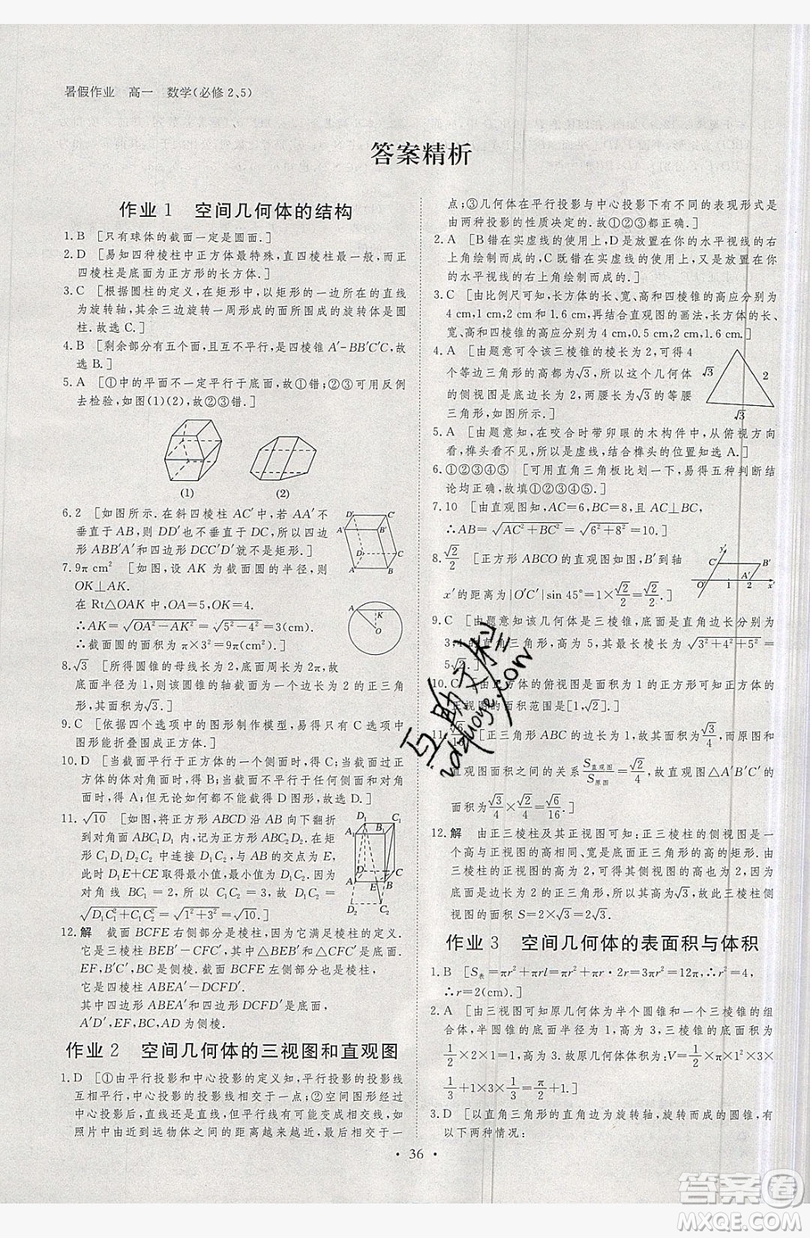 暑假作业　高一　数学(必修2、5)
答案精析
作业1　空间几何体的结构
1.B　[只有球体的截面一定是圆面.]
2.D　[易知四棱柱中正方体最特殊，直四棱柱最一般，正四棱柱是底面为正方形的长方体.]
3.C　[根据圆柱的定义，在以矩形的一边所在的直线为旋转轴，其余三边旋转一周形成的面所围成的旋转体是圆柱.故选C.]
4.B　[剩余部分有五个面，且互不平行，是四棱锥A′-BB′C′C，故选B.]
5.A　[①中的平面不一定平行于底面，故①错.②③可用反例去检验，如图(1)(2)，故②③错.]
(1)
(2)
6.2　[如图所示.在斜四棱柱AC′中，若AA′不垂直于AB，则DD′也不垂直于DC，所以四边形ABB′A′和四边形DCC′D′就不是矩形.]
D′
C′
A′
B′
D
C
A
B
7.9π cm²　[如图，设AK为截面圆的半径，则OK⊥AK.
在Rt△OAK中，OA=5(cm)，OK=4(cm)，
∴AK=√(OA²−OK²)=√(5²−4²)=3(cm)，
∴截面圆的面积为π×3²=9π(cm²).]
A
K
O
8.√3　[所得圆锥的母线长为2，底面圆周长为2π，故底面半径为1，则圆锥的轴截面为边长为2的正三角形，其面积为√3.]
9.C　[依据四个选项中的图形制作模型，只有C选项中的图形能折叠围成正方体.]
10.D　[当截面平行于正方体的一个侧面时得③；当截面过正方体的体对角线时得②；当截面不平行于任何侧面也不过体对角线时得①；但无论如何都不能截出④.]
11.√10　[如图，将正方形ABCD沿AB向下翻折到对角面ABC₁D₁内，成为正方形ABC₂D₂，在矩形C₁D₁D₂C₂中连接D₁C₂，与AB的交点为E，此时D₁E+CE取得最小值，最小值为D₁C₂的长.因为对角线BC₁=2，所以C₁C₂=3，故D₁C₂=√(D₁C₁²+C₁C₂²)=√(1²+3²)=√10.]
12.解　截面BCFE右侧部分是棱柱，因为它满足棱柱的定义.
它是三棱柱BEB′-CFC′，其中△BEB′和△CFC′是底面.EF，B′C′，BC是侧棱.截面BCFE左侧部分也是棱柱.它是四棱柱ABEA′-DCFD′，其中四边形ABEA′和四边形DCFD′是底面.
A′D′，EF，BC，AD为侧棱.
作业2　空间几何体的三视图和直观图
1.D　[①由平行投影和中心投影的定义知，平行投影的投影线互相平行，中心投影的投影线相交于一点；②空间图形经过中心投影后，直线可能变成直线，也可能变成一个点，如照片中由近到远物体之间的距离越来越近，最后相交于一
点；③几何体在平行投影与中心投影下有不同的表现形式是由两种投影的性质决定的.故①②③均错.]
2.A　[B错在实虚线的位置；D是放置在你的水平视线的左上角绘制而成的，C既错在实虚线，又是放置在你的水平视线的右上角绘制而成的.]
3.C　[由比例尺可知，长方体的长、宽、高和四棱锥的高应分别为4 cm,1 cm,2 cm和1.6 cm，再结合直观图的画法，长方体的长、宽、高和四棱锥的高应分别为4 cm,0.5 cm,2 cm,1.6 cm.]
4.A　[由题意可令该三棱锥的棱长为2，可得4个等边三角形的高都为√3，且该三棱锥的侧视图是底边长为2，两个腰长都为√3的等腰三角形，故选A.]
√3
2
√3
5.A　[由题意知，在咬合时带卯眼的木构件中，从俯视方向看，榫头看不见，所以是虚线，结合榫头的位置知选A.]
6.①②③④⑤　[可用直角三角板比划一下，易得五种判断结论均有可能出现，故应填①②③④⑤.]
7.10　[由直观图知，AC=6，BC=8，AC⊥BC，
∴AB=√(AC²+BC²)=√(6²+8²)=10.]
8.√2/2　[正方形ABCO的直观图如图，则B′到轴x′的距离为|O′C′|sin 45°=1/√2×√2/2=
9.C　[由题意知该几何体为三棱锥，底面是直角三角形，高为5，最长棱长为√(3²+4²+5²)=5√2.]
10.C　[由题意可知，正方体的俯视图是面积为1的正方形可知正方体的正视图的面积范围是[1,√2].]
△ABC的直观图面积为√3/4，而原图和直观图面积之间的关系 S直观图/S原图=√2/4，故直观图△A′B′C′的面积为√3/4×√2/4=√6/16.]
12.解　由正三棱柱及其正视图可知，正三棱柱的侧视图是一个高与正视图的高相等、宽为底面正三角形的高的矩形，又底面正三角形的边长为2，其高为√3，故此正三棱柱的侧视图的面积S=2×√3=2√3.
作业3　空间几何体的表面积与体积
1.B　[S表=πr²+πrl=πr²+πr·2r=3πr²=12π，∴r²=4，
∴r=2(cm).]
2.A　[由三视图可知原几何体为半个圆锥和一个三棱锥的组合体，半圆锥的底面半径为1，高为3，三棱锥的底面积为1/2×2×1=1，高为3.故原几何体体积为：V=1/2×π×1²×3×1/3+1×3×1/3=π/2+1.]
3.D　[以直角三角形的直角边为旋转轴，旋转而成的圆锥，有以下两种情况：
· 36 ·
互助文档
hdzuoye.com
答案圈
MXQE.COM